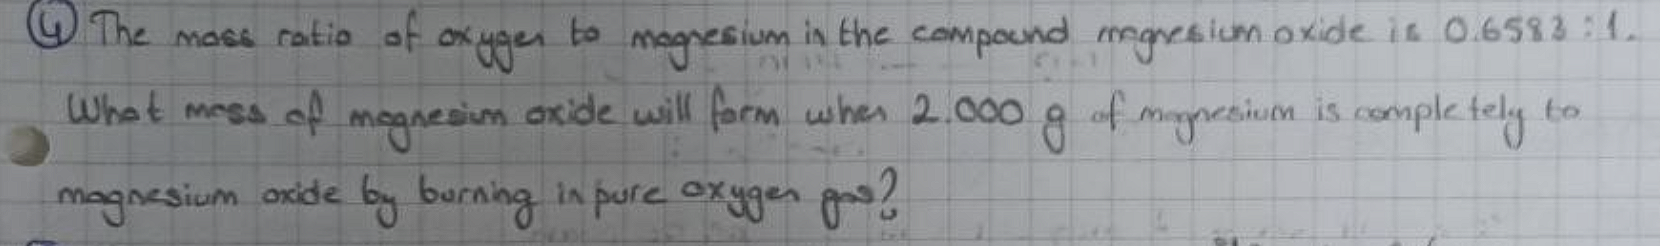 ④ The mass ratio of oxygen to magnesium in the compound magnesium oxide is 0.6583 : 1.
What mass of magnesium oxide will form when 2.000 g of magnesium is completely to
magnesium oxide by burning in pure oxygen gas?